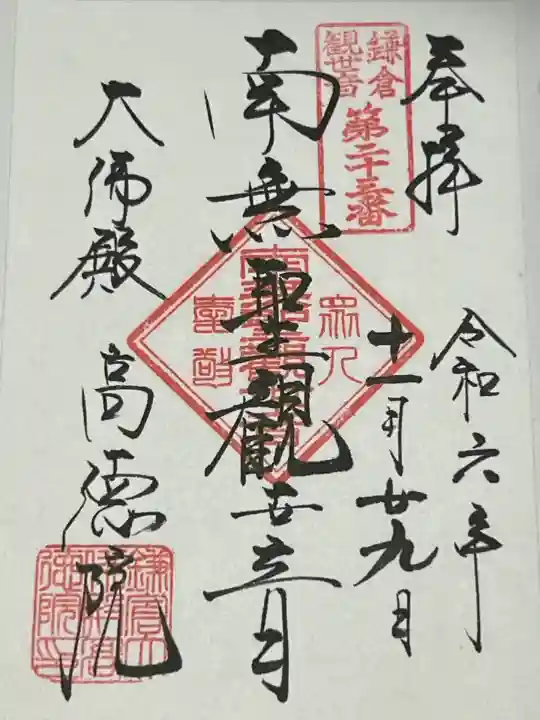 奉拝
令和六年
十一月廿九日
鎌倉
観世音
第二十三番
南無聖観世音
大佛殿
高德院